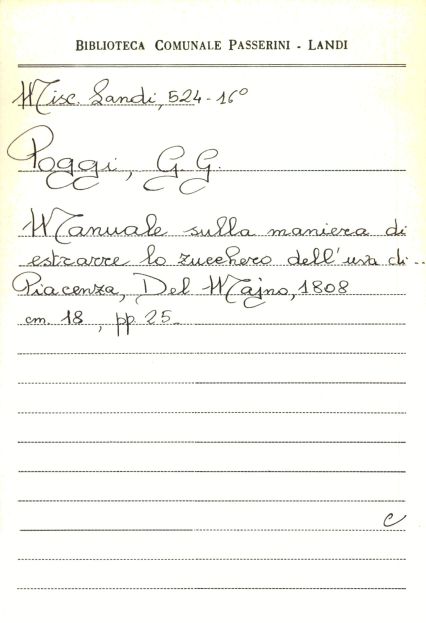 BIBLIOTECA COMUNALE PASSERINI - LANDI
Misc. Landi, 524-16º
Poggi, G.G.
Manuale sulla maniera di
estrarre lo zucchero dell'uva di...
Piacenza, Del Majno, 1808
cm. 18, pp. 25.
c